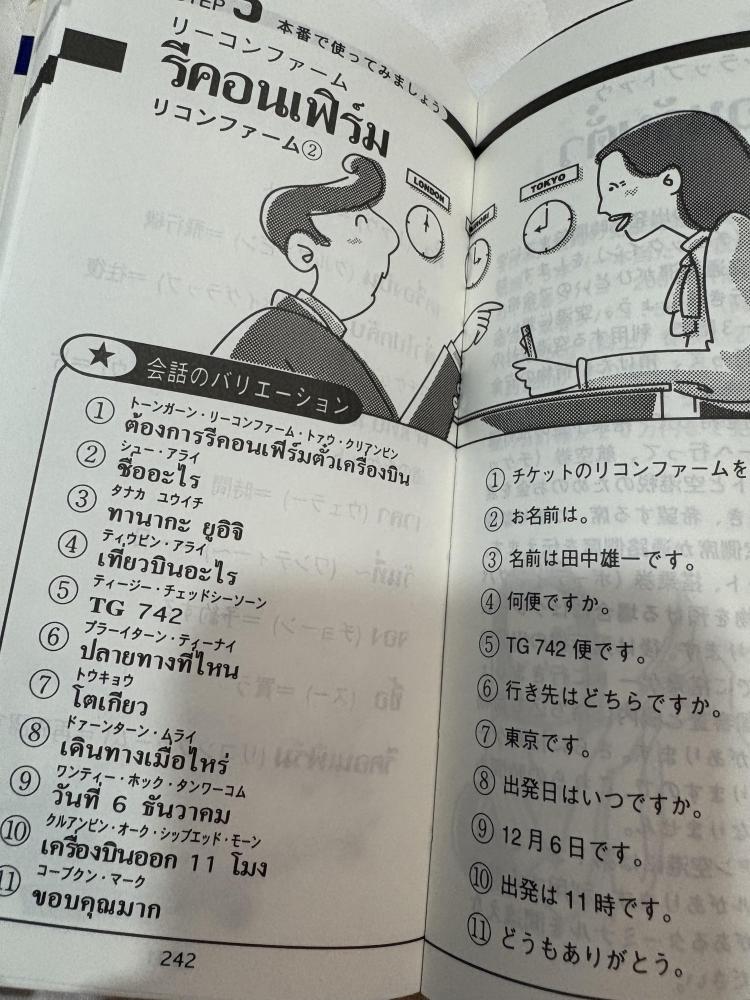 STEP 3
本番で使ってみましょう
リーコンファーム
รีคอนเฟิร์ม
リコンファーム②
LONDON
TOKYO
★ 会話のバリエーション
① トーンガーン・リーコンファーム・トァウ・クリアンビン
ต้องการรีคอนเฟิร์มตั๋วเครื่องบิน
② シュー・アライ
ชื่ออะไร
③ タナカ ユウイチ
ทานากะ ยูอิจิ
④ ティウビン・アライ
เที่ยวบินอะไร
⑤ ティージー・チェッドシーソーン
TG 742
⑥ プラーイターン・ティーナイ
ปลายทางที่ไหน
⑦ トウキョウ
โตเกียว
⑧ ドァーンターン・ムライ
เดินทางเมื่อไหร่
⑨ ワンティー・ホック・タンワーコム
วันที่ 6 ธันวาคม
⑩ クルアンビン・オーク・シップエッド・モーン
เครื่องบินออก 11 โมง
⑪ コープクン・マーク
ขอบคุณมาก
242
① チケットのリコンファームを
② お名前は。
③ 名前は田中雄一です。
④ 何便ですか。
⑤ TG 742 便です。
⑥ 行き先はどちらですか。
⑦ 東京です。
⑧ 出発日はいつですか。
⑨ 12月6日です。
⑩ 出発は11時です。
⑪ どうもありがとう。